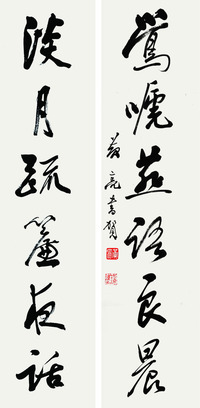 鶯燕語良晨
淡月疏簾夜話
亮書賀